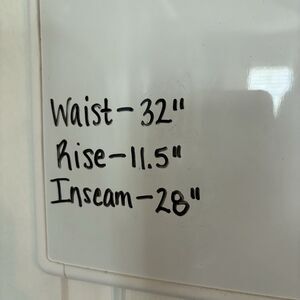 Waist-32"
Rise-11.5"
Inseam-28"